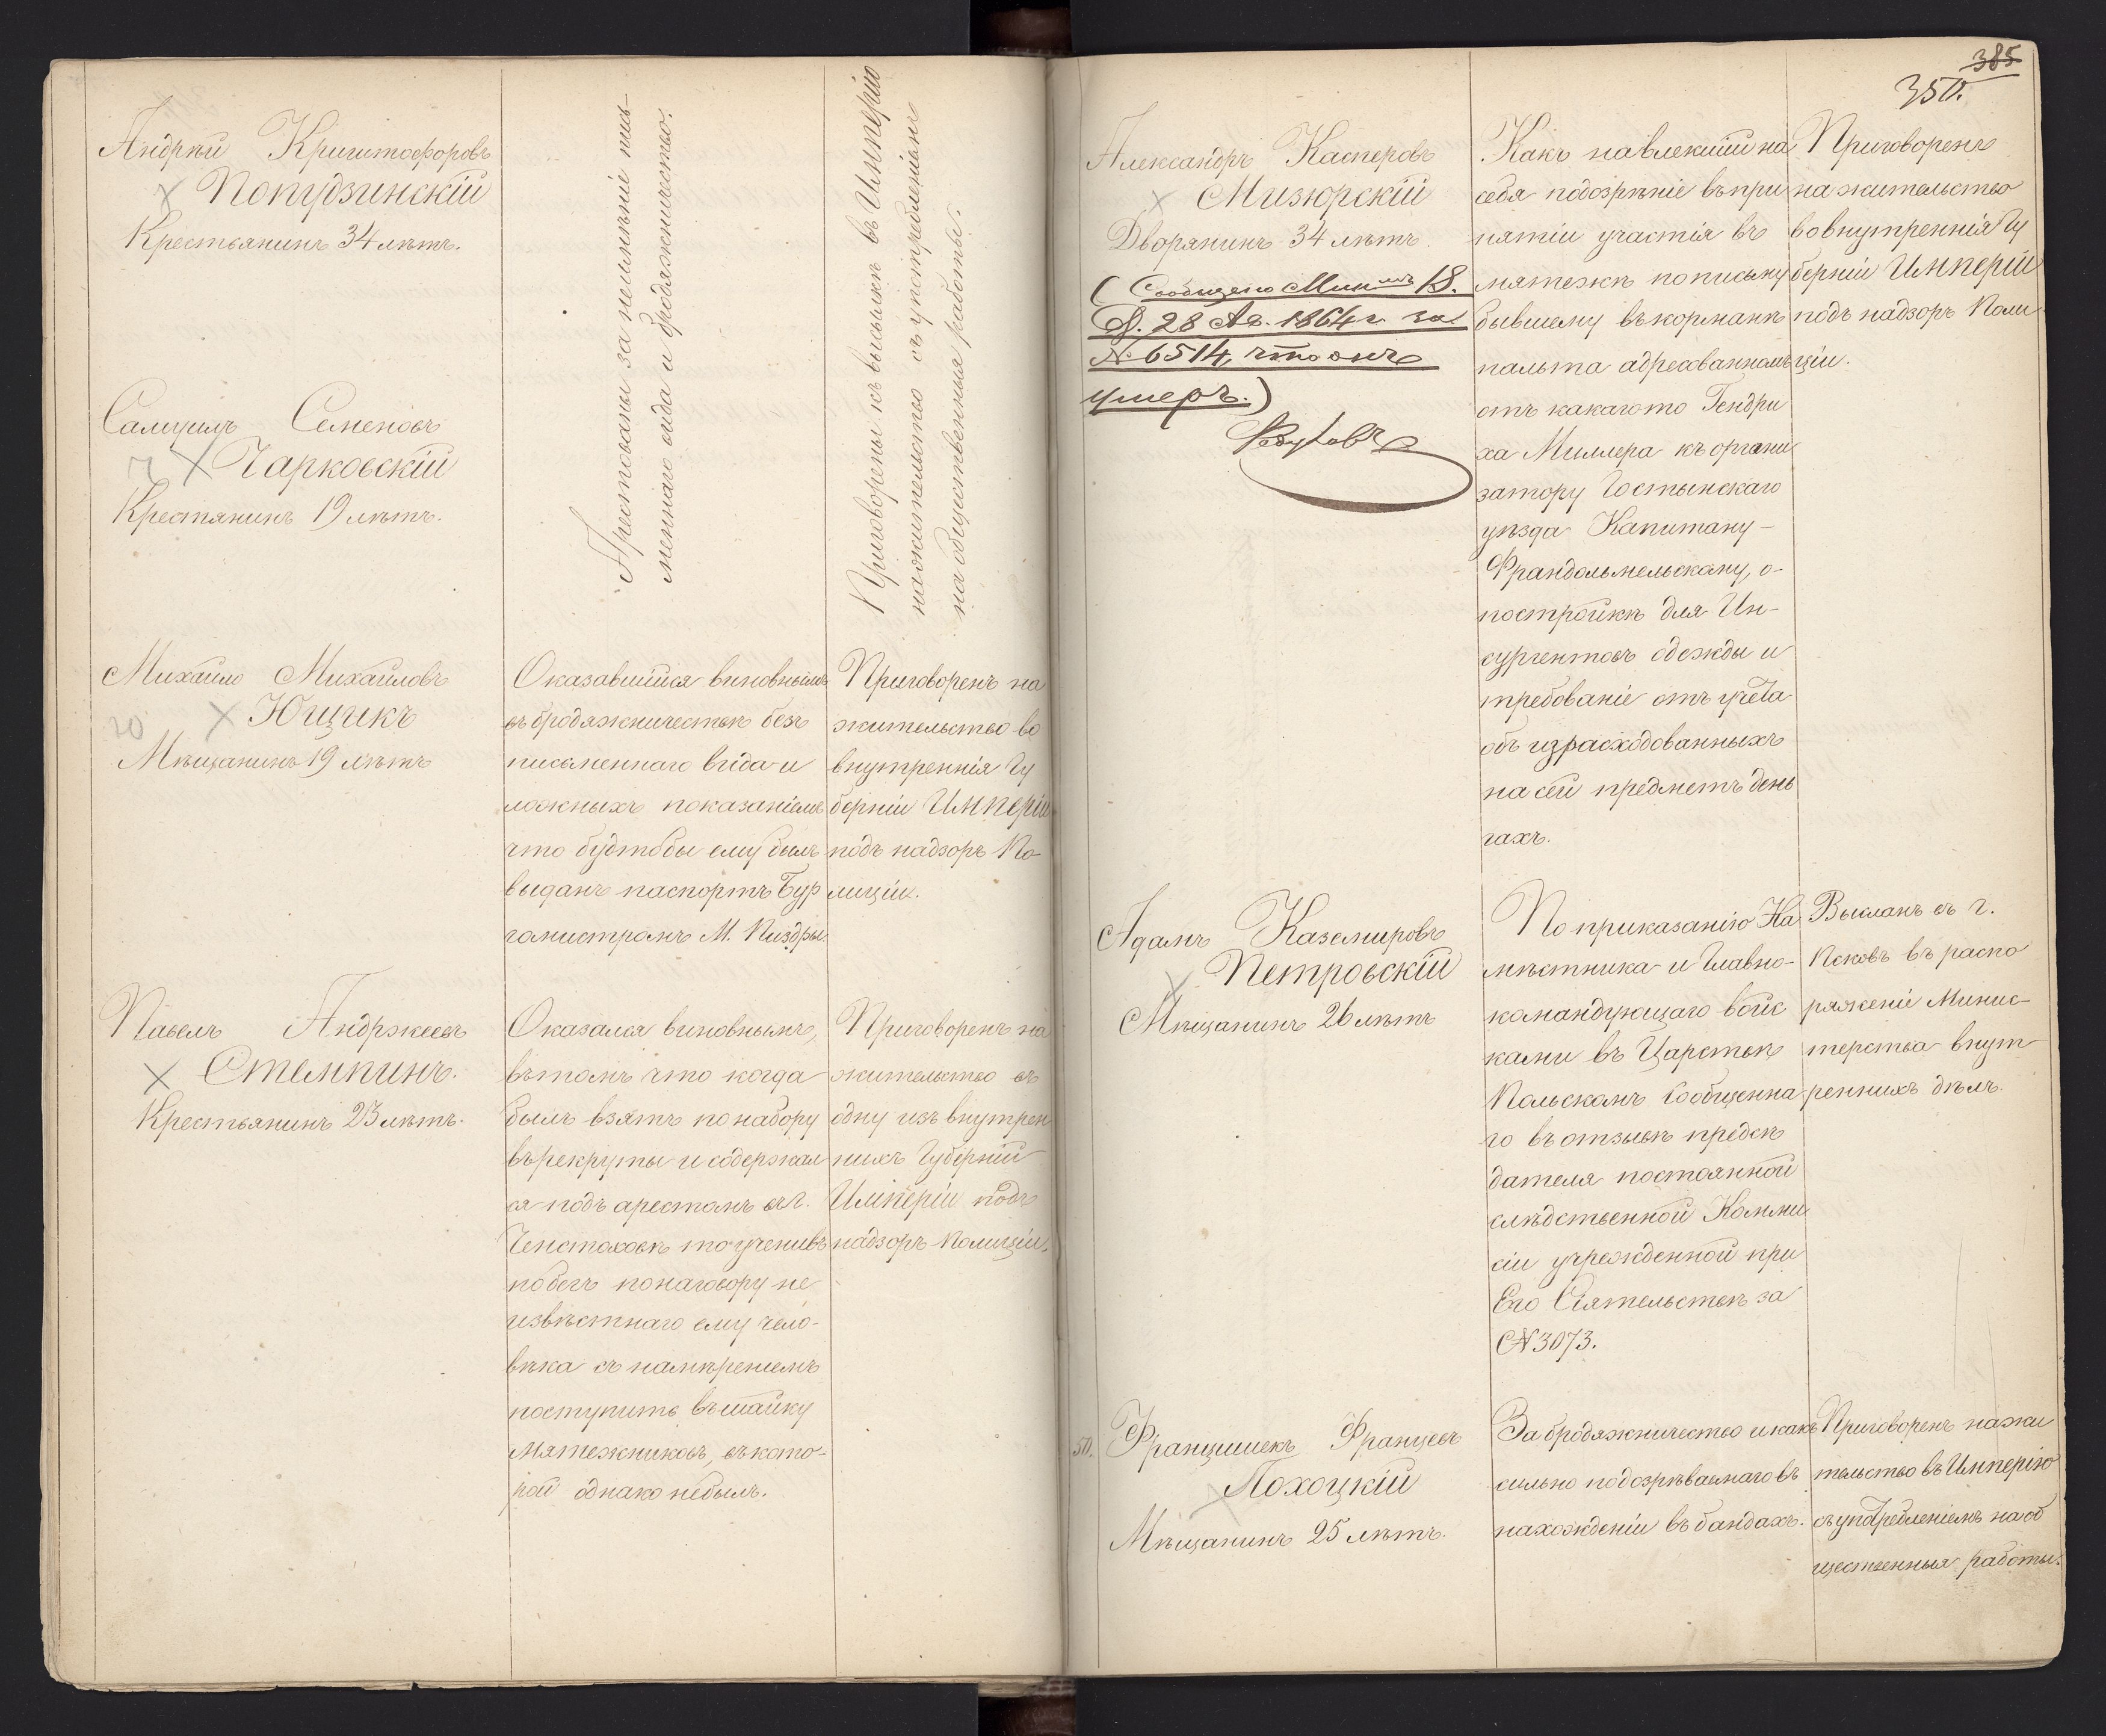 Андрѣй Криштофоровъ
Попудзинскій
Крестьянинъ 34 лѣтъ.
Арестованы за неимѣніе пись-
меннаго вида и бродяжничество.
Приговорены къ высылкѣ въ Имперію
на жительство съ употребленіемъ
на общественныя работы.
Самуилъ Семеновъ
Чарковскій
Крестянинъ 19 лѣтъ.
Михайло Михайловъ
Ющикъ
Мѣщанинъ 19 лѣтъ
Оказавшійся виновнымъ
въ бродяжничествѣ безъ
письменнаго вида и
ложныхъ показаніемъ
что будтобы ему былъ
выданъ паспортъ Бур
гомистромъ М. Пиздры
Приговоренъ на
жительство во
внутреннія Гу
берніи Имперіи
подъ надзоръ По-
лиціи.
Павелъ Андржеевъ
Стемпинъ.
Крестьянинъ 23 лѣтъ.
Оказался виновнымъ,
въ томъ что когда
былъ взятъ по набору
въ рекруты и содержал
ся подъ арестомъ въ г.
Ченстоховѣ то учинивъ
побегъ по наговору не
извѣстнаго ему чело-
вѣка съ намѣреніемъ
поступить въ шайку
мятежниковъ, въ кото-
рой однако небылъ.
Приговоренъ на
жительство въ
одну изъ внутрен
нихъ Губерній
Имперіи подъ
надзоръ Полиціи.
385
350.
Александръ Касперовъ
Мизюрскій
Дворянинъ 34 лѣтъ.
(Сообщено Мин.мъ В.
Д. 28 Ав. 1864 г. за
№ 6514, что онъ
умеръ.)
Какъ навлекшій на
себя подозрѣніе въ при
нятіи участія въ
мятежѣ по письму
бывшему въ корманѣ
пальта адресованномъ
отъ какагото Гендри
ха Миллера къ органи
затору Гостынскаго
уѣзда Капитану-
Франдольмельскому, о-
постройкѣ для Ин-
сургентовъ одежды и
требованіе отъ учета
объ израсходованныхъ
на сей предметъ день
гахъ.
Приговоренъ
на жительство
во внутреннія Гу
берніи Имперіи
подъ надзоръ Поли
ціи.
Адамъ Каземировъ
Петровскій
Мѣщанинъ 26 лѣтъ
По приказанію На
мѣстника и Главно-
командующаго войс
ками въ Царствѣ
Польскомъ Сообщенна
го въ отзывѣ предсѣ
дателя постоянной
слѣдственной Комми
сіи учрежденной при
Его Сіятельствѣ за
№ 3073.
Высланъ въ г.
Псковъ въ распо
ряженіе Минис-
терства внут-
реннихъ дѣлъ.
50. Францишекъ Францевъ
Лохоцкій
Мѣщанинъ 25 лѣтъ.
За бродяжничество и какъ
сильно подозрѣваемаго въ
нахожденіи въ бандахъ.
Приговоренъ на жи
тельство въ Имперію
съ употребленіемъ на об
щественныя работы.